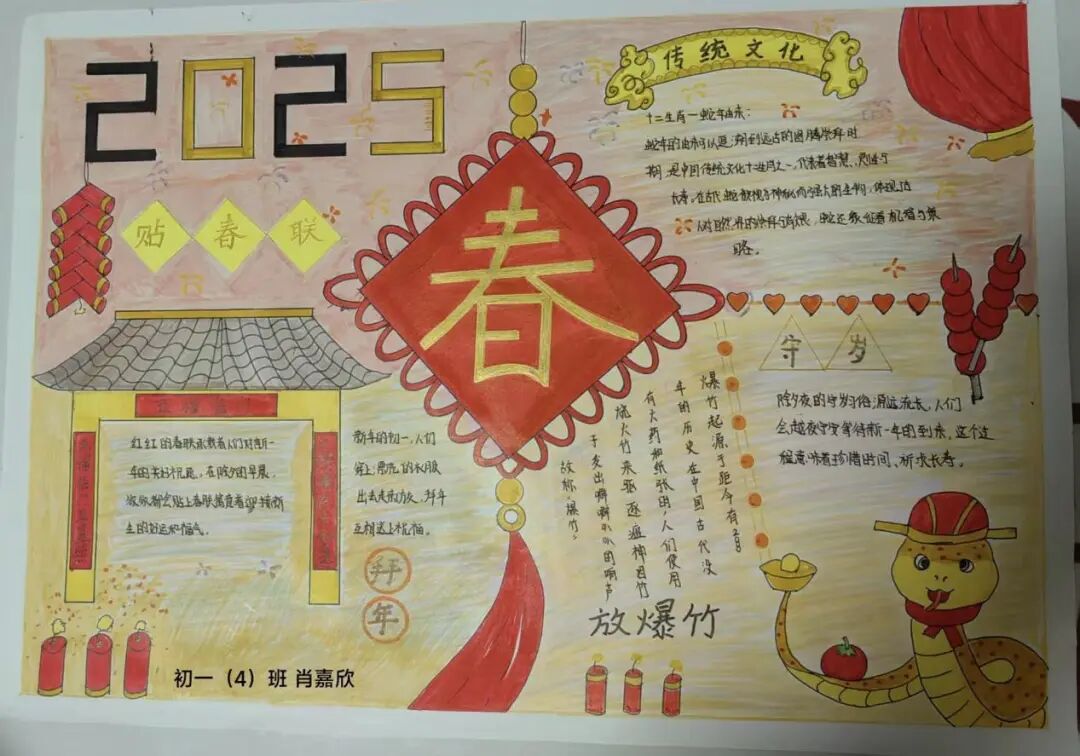 2025
传统文化
十二生肖—蛇年由来:
蛇年的由来可以追溯到远古的图腾崇拜时
期,是中国传统文化十二生肖之一,代表着智慧、
长寿。在古代,蛇被视为神秘而强大的生物,体现古
人对自然界的崇拜与敬畏,蛇还象征着机智与策
略。
贴春联
春
守岁
除夕夜的守岁习俗源远流长,人们
会趁夜守岁等待新一年的到来,这个过
程意味着珍惜时间、祈求长寿。
红红的春联承载着人们对新一
年的美好祝愿,在除夕的早晨,
家家都会贴上春联寓意着迎接新
生的好运和福气。
新年的初一,人们
穿上漂亮的衣服
出去走亲访友,拜年
互相送上祝福。
拜年
爆竹起源于距今有2千
年的历史在中国古代没
有火药和纸张时,人们使用
烧火竹来驱逐瘟神因竹
子发出噼噼叭叭的响声
故称“爆竹”。
放爆竹
初一（4）班 肖嘉欣